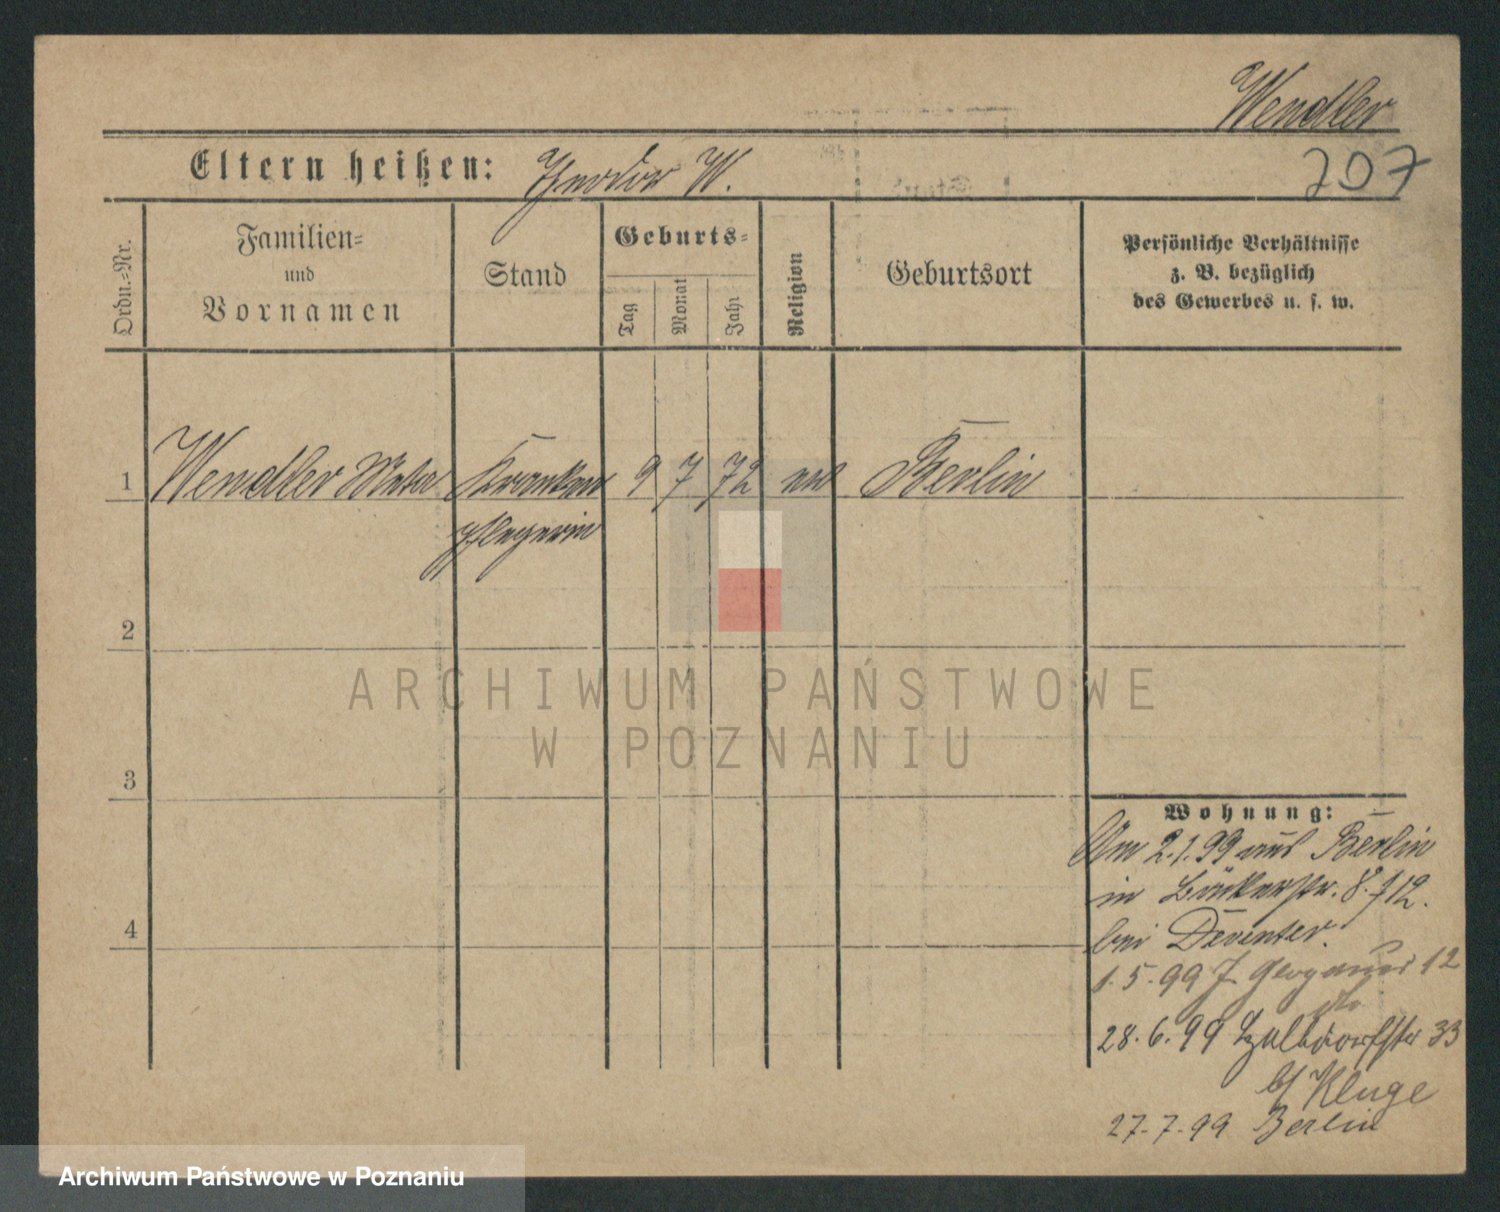 Wendler
707
Eltern heißen: Theodor W.
Ordn.=Nr.
Familien=
und
Vornamen
Stand
Geburts=
Tag
Monat
Jahr
Religion
Geburtsort
Persönliche Verhältnisse
z. B. bezüglich
des Gewerbes u. s. w.
1 Wendler Meta Kranken 9 7 72 ev Berlin
pflegerin
2
3
4
Wohnung:
Am 2.1.99 aus Berlin
in Bäckerstr. 8.
bei Deventer.
1.5.99 Glogauer 12
28.6.99 33
b/ Kluge
27.7.99 Berlin
ARCHIWUM PAŃSTWOWE
W POZNANIU
Archiwum Państwowe w Poznaniu